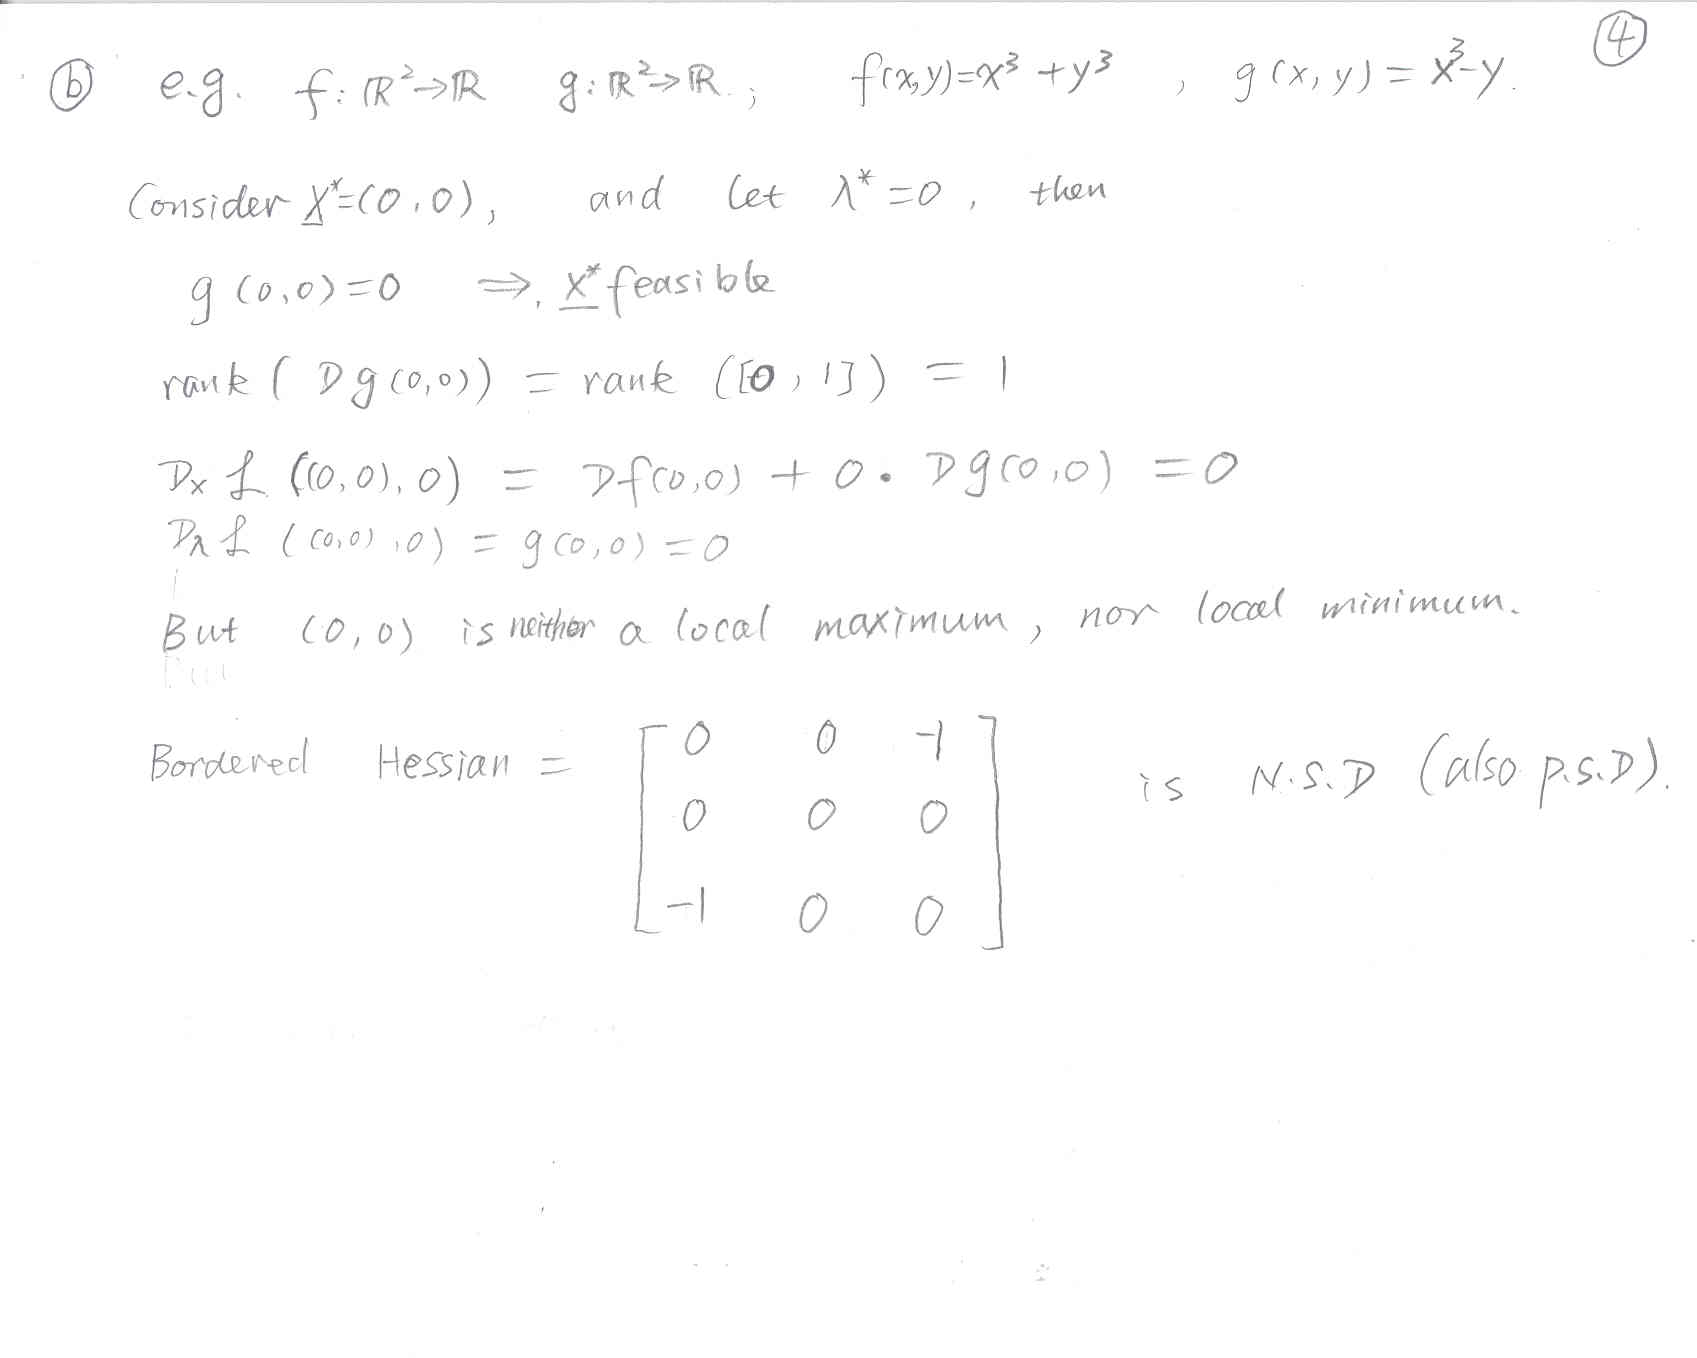 ④
ⓑ e.g. f: ℝ²→ℝ g: ℝ²→ℝ.; f(x,y)=x³+y³, g(x,y)=x³-y.
Consider X*=(0,0), and let λ*=0, then
g(0,0)=0 ⇒, X* feasible
rank(Dg(0,0)) = rank([0,1]) = 1
Dx ℒ((0,0),0) = Df(0,0) + 0·Dg(0,0) = 0
Dλ ℒ((0,0),0) = g(0,0) = 0
But (0,0) is neither a local maximum, nor local minimum.
Bordered Hessian = [0 0 -1
0 0 0
-1 0 0] is N.S.D (also p.s.D).